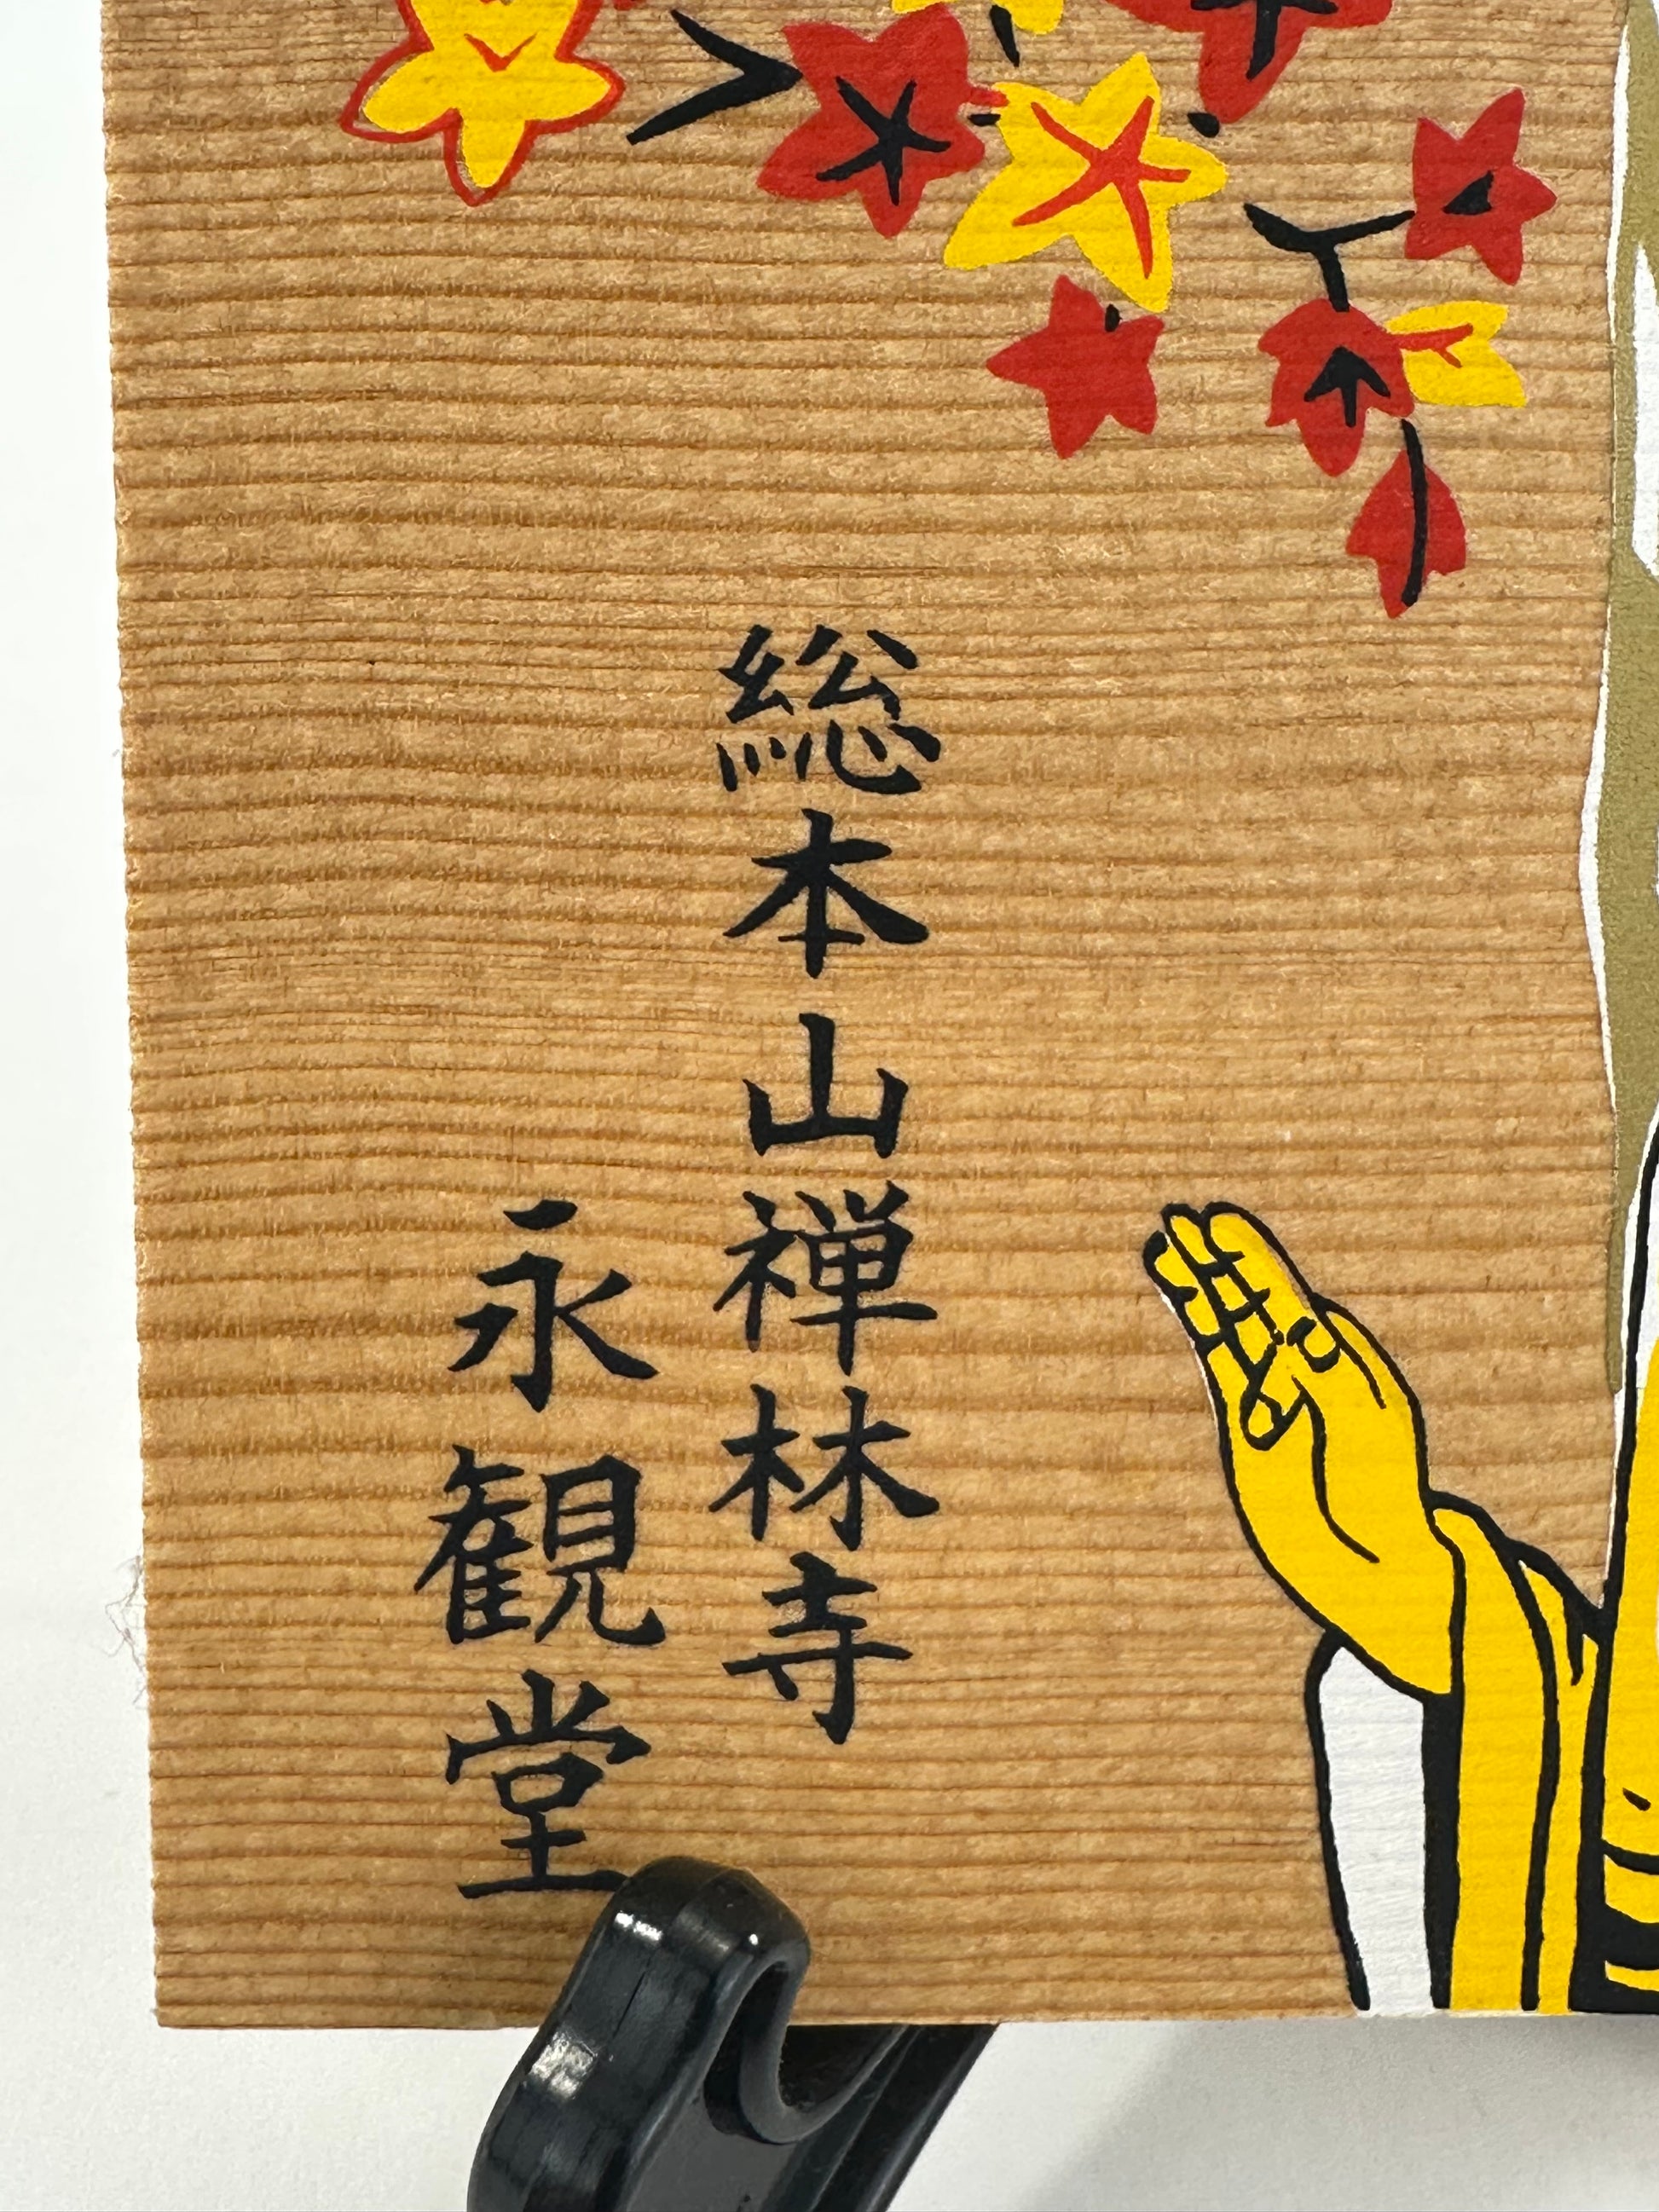 総本山禅林寺
永観堂